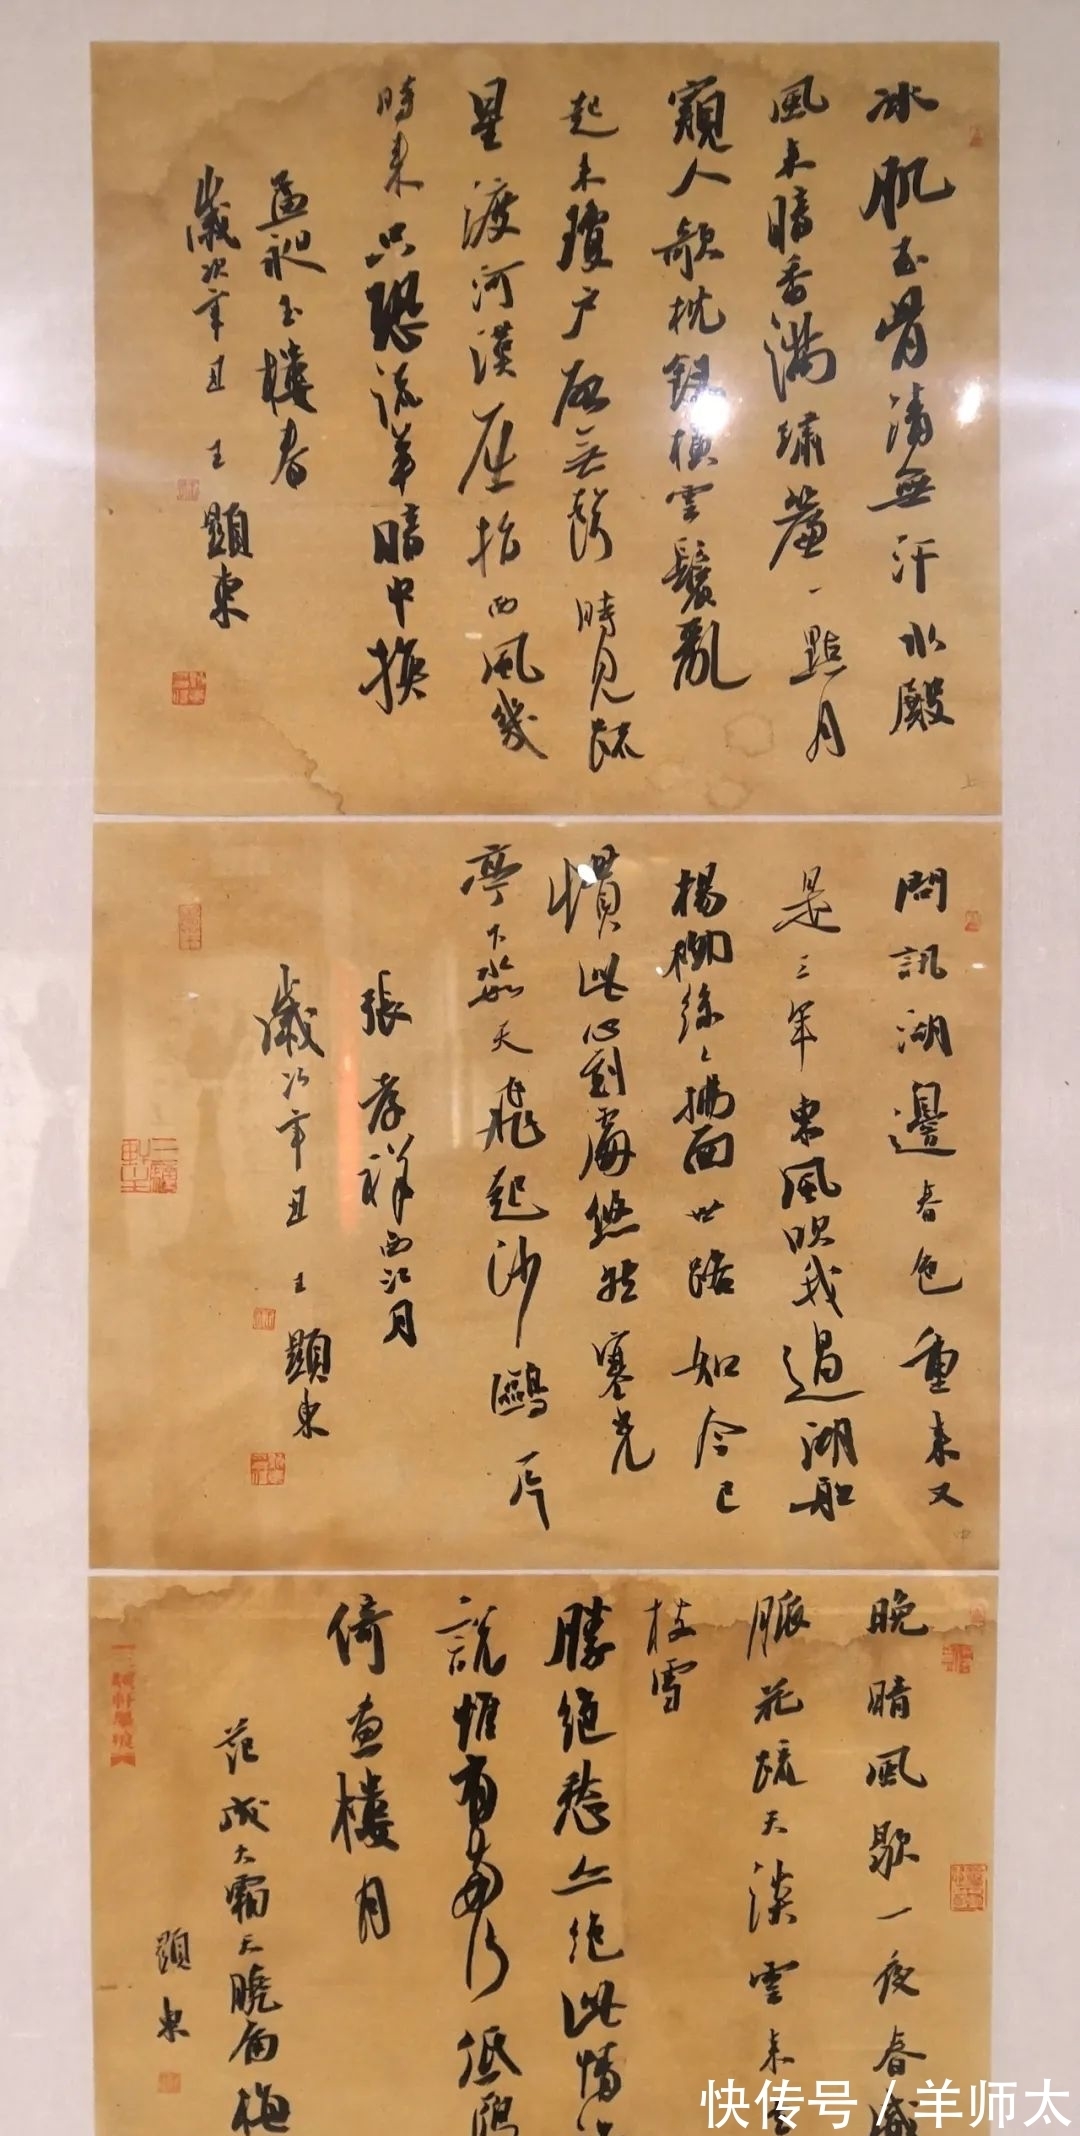 冰肌玉骨清無汗水殿
風來暗香滿繡簾一點月
窺人欹枕釵橫雲鬢亂
起來瓊戶啟無聲時見疏
星渡河漢屈指西風幾
時來只恐流年暗中換
孟昶玉樓春
歲次辛丑 王顯東
問訊湖邊春色重來又
是三年東風吹我過湖船
楊柳絲々拂面世路如今已
慣此心到處悠然寒光
亭下水如天飛起沙鷗一片
張孝祥西江月
歲次辛丑 王顯東
晚晴風歇一夜春威
脈花疏天淡雲來
枝雪
勝絕愁亦絕此情
說惟有兩行低
倚畫樓月
范成大霜天曉角梅
顯東
快传号/羊师太